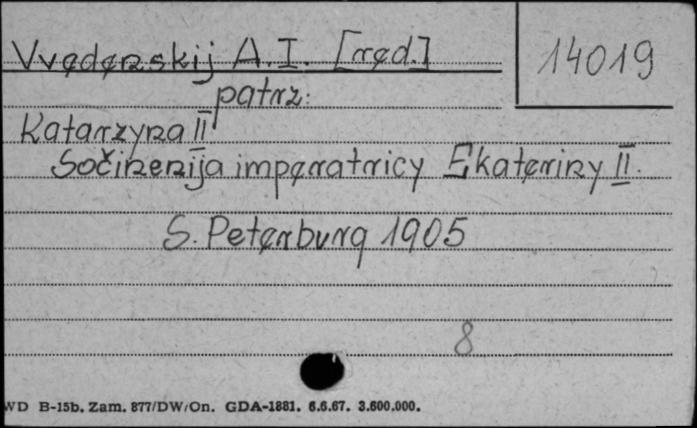 Vvedenskij A.I. [red.]
14019
patrz:
Katarzyna II
Sočinenija imperatricy Ekateriny II.
S. Peterburg 1905
8
WD B-15b. Zam. 877/DW/On. GDA-1881. 6.6.67. 3.600.000.